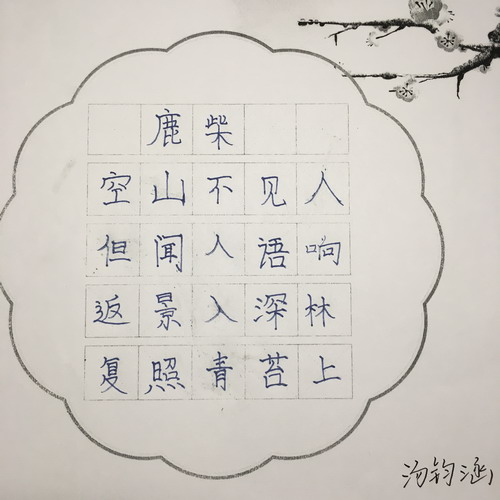 鹿柴
空山不见人
但闻人语响
返景入深林
复照青苔上
汤钧涵